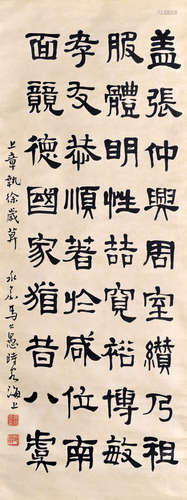 盖張仲興周室纘乃祖
服體明性喆寬裕博敏
孝友恭順著於咸位南
面競德國家猶昔八虞
上章執徐歲
永嘉馬公愚時客海上